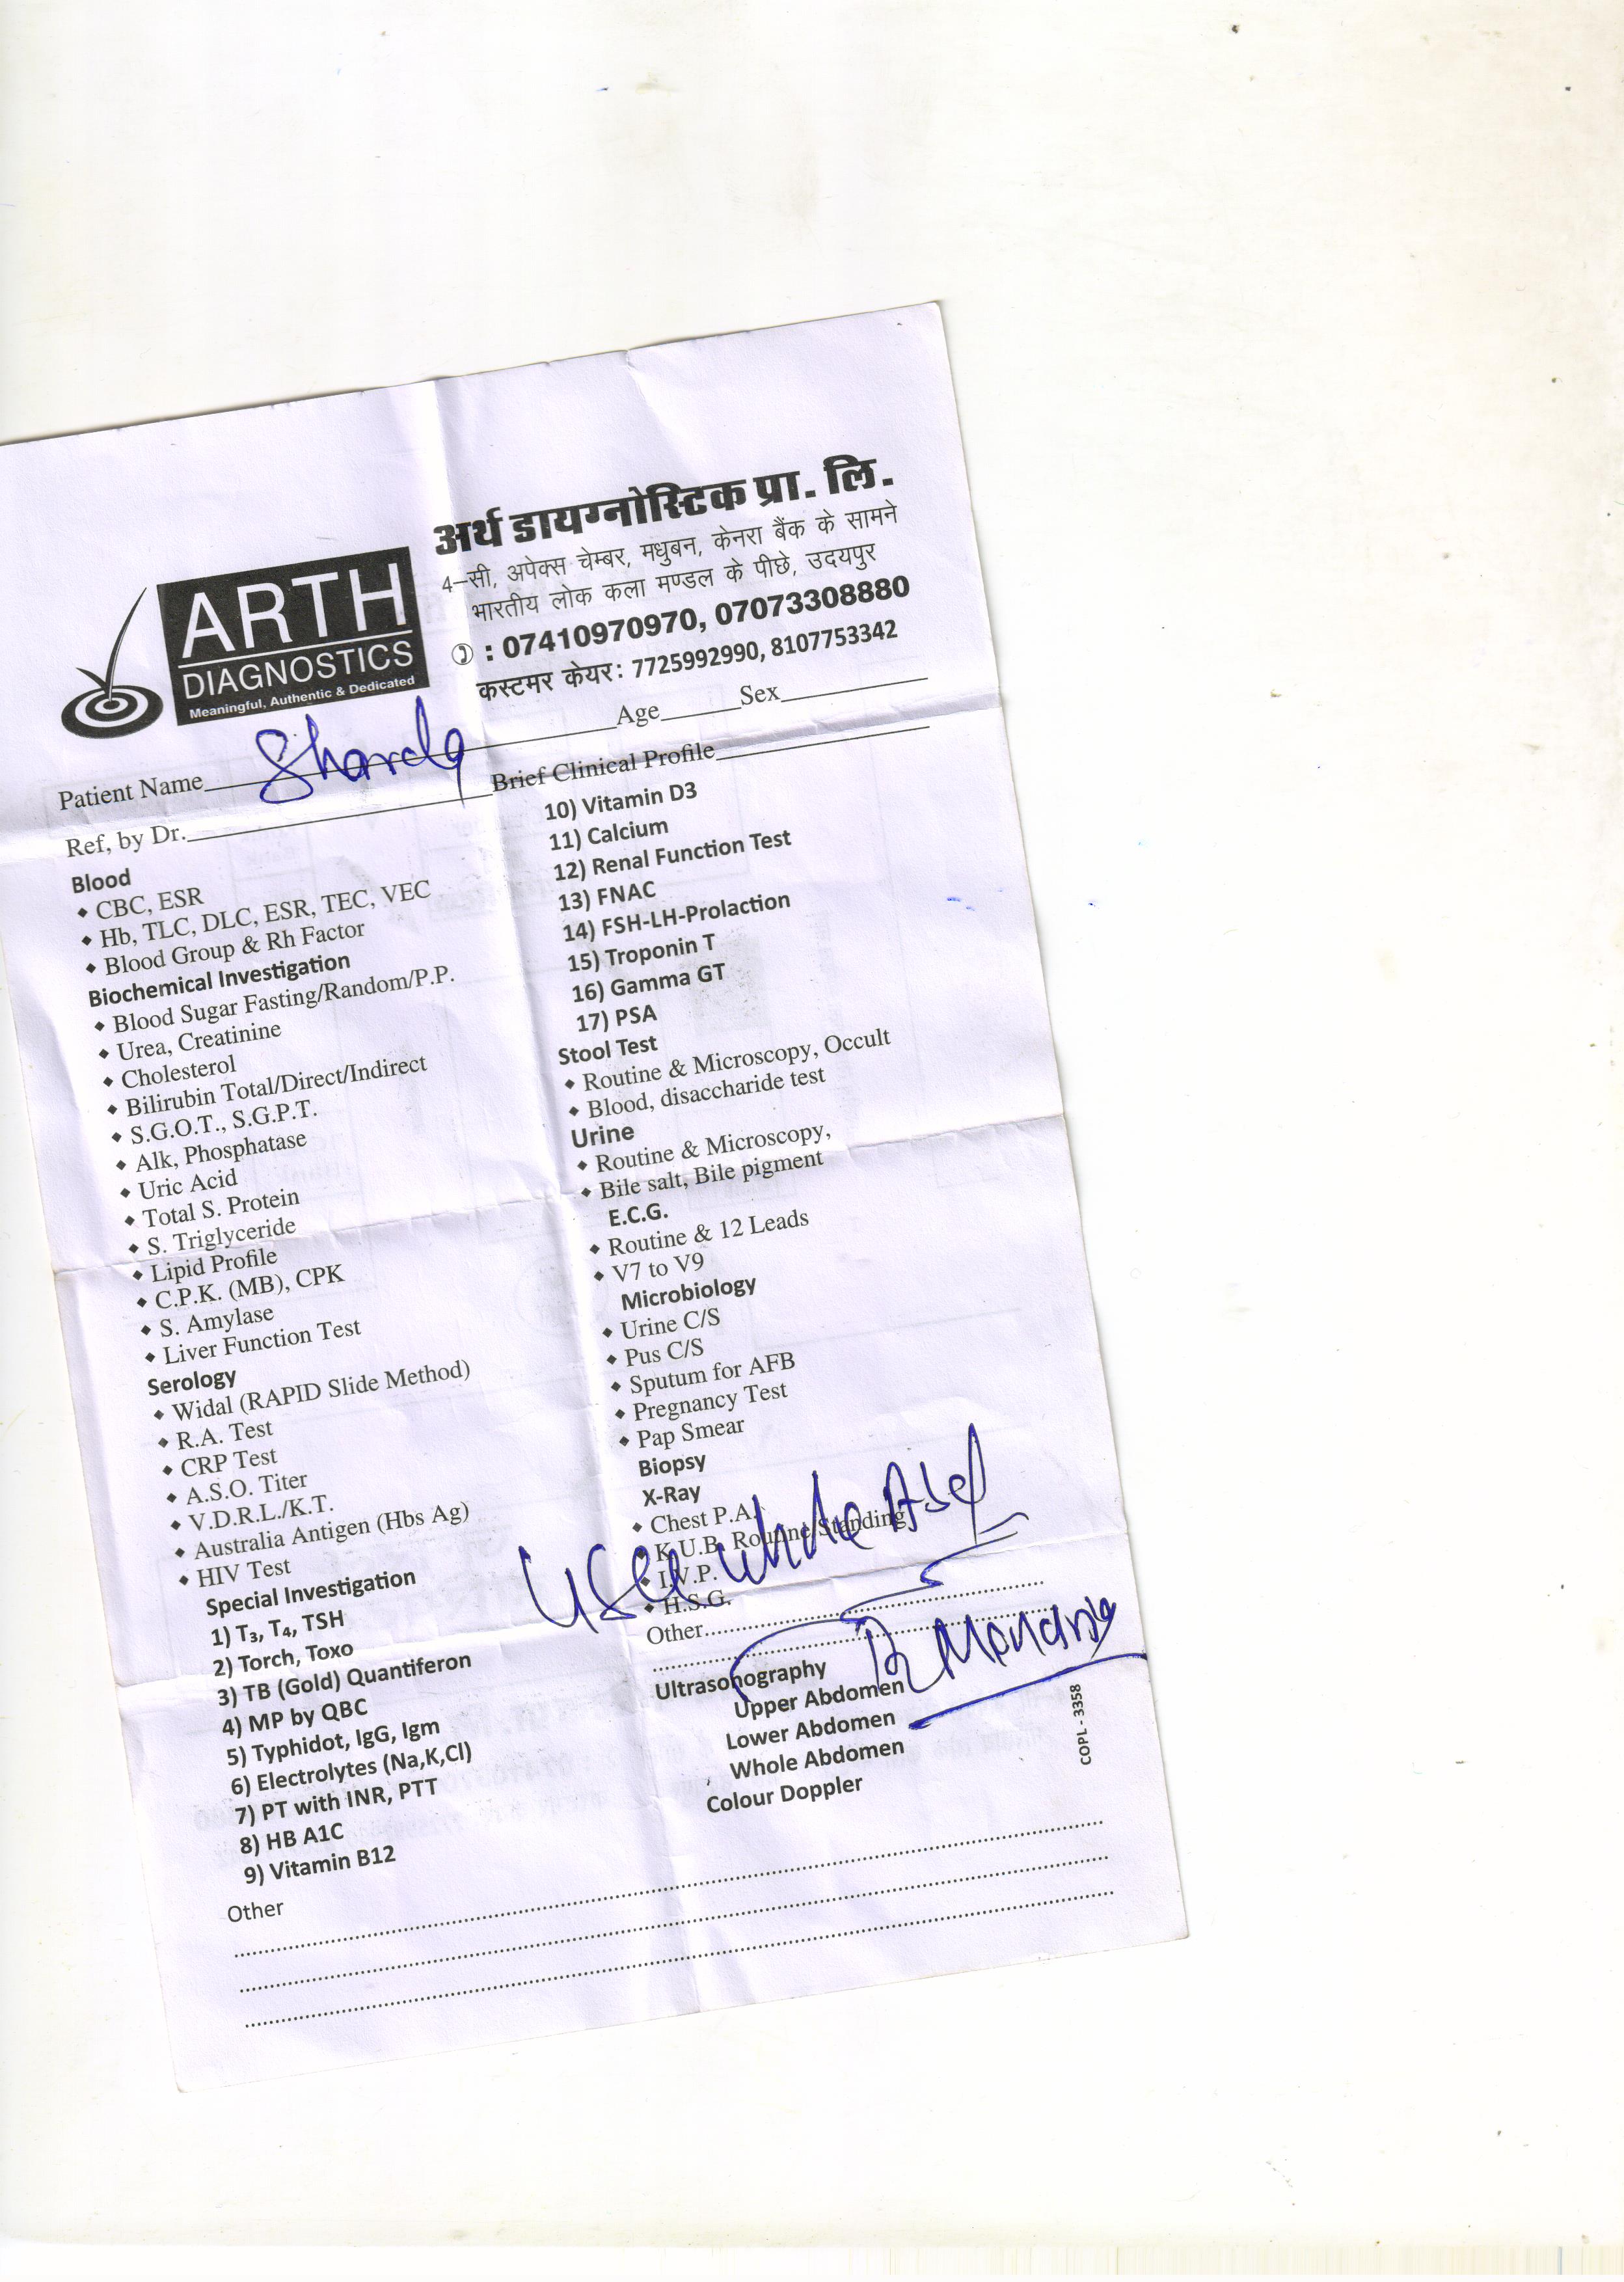 अर्थ डायग्नोस्टिक प्रा. लि.
4–सी, अपेक्स चेम्बर, मधुबन, केनरा बैंक के सामने
भारतीय लोक कला मण्डल के पीछे, उदयपुर
: 07410970970, 07073308880
कस्टमर केयर: 7725992990, 8107753342
ARTH
DIAGNOSTICS
Meaningful, Authentic & Dedicated
Patient Name Sharda Age Sex
Ref, by Dr. Brief Clinical Profile
Blood
CBC, ESR
Hb, TLC, DLC, ESR, TEC, VEC
Blood Group & Rh Factor
Biochemical Investigation
Blood Sugar Fasting/Random/P.P.
Urea, Creatinine
Cholesterol
Bilirubin Total/Direct/Indirect
S.G.O.T., S.G.P.T.
Alk, Phosphatase
Uric Acid
Total S. Protein
S. Triglyceride
Lipid Profile
C.P.K. (MB), CPK
S. Amylase
Liver Function Test
Serology
Widal (RAPID Slide Method)
R.A. Test
CRP Test
A.S.O. Titer
V.D.R.L./K.T.
Australia Antigen (Hbs Ag)
HIV Test
Special Investigation
1) T₃, T₄, TSH
2) Torch, Toxo
3) TB (Gold) Quantiferon
4) MP by QBC
5) Typhidot, IgG, Igm
6) Electrolytes (Na,K,Cl)
7) PT with INR, PTT
8) HB A1C
9) Vitamin B12
10) Vitamin D3
11) Calcium
12) Renal Function Test
13) FNAC
14) FSH-LH-Prolaction
15) Troponin T
16) Gamma GT
17) PSA
Stool Test
Routine & Microscopy, Occult
Blood, disaccharide test
Urine
Routine & Microscopy,
Bile salt, Bile pigment
E.C.G.
Routine & 12 Leads
V7 to V9
Microbiology
Urine C/S
Pus C/S
Sputum for AFB
Pregnancy Test
Pap Smear
Biopsy
X-Ray
Chest P.A.
K.U.B. Routine Standing
I.V.P.
H.S.G.
whole Abd
Other
Dr
Ultrasonography
Upper Abdomen
Lower Abdomen
Whole Abdomen
Colour Doppler
COPL - 3358
Other